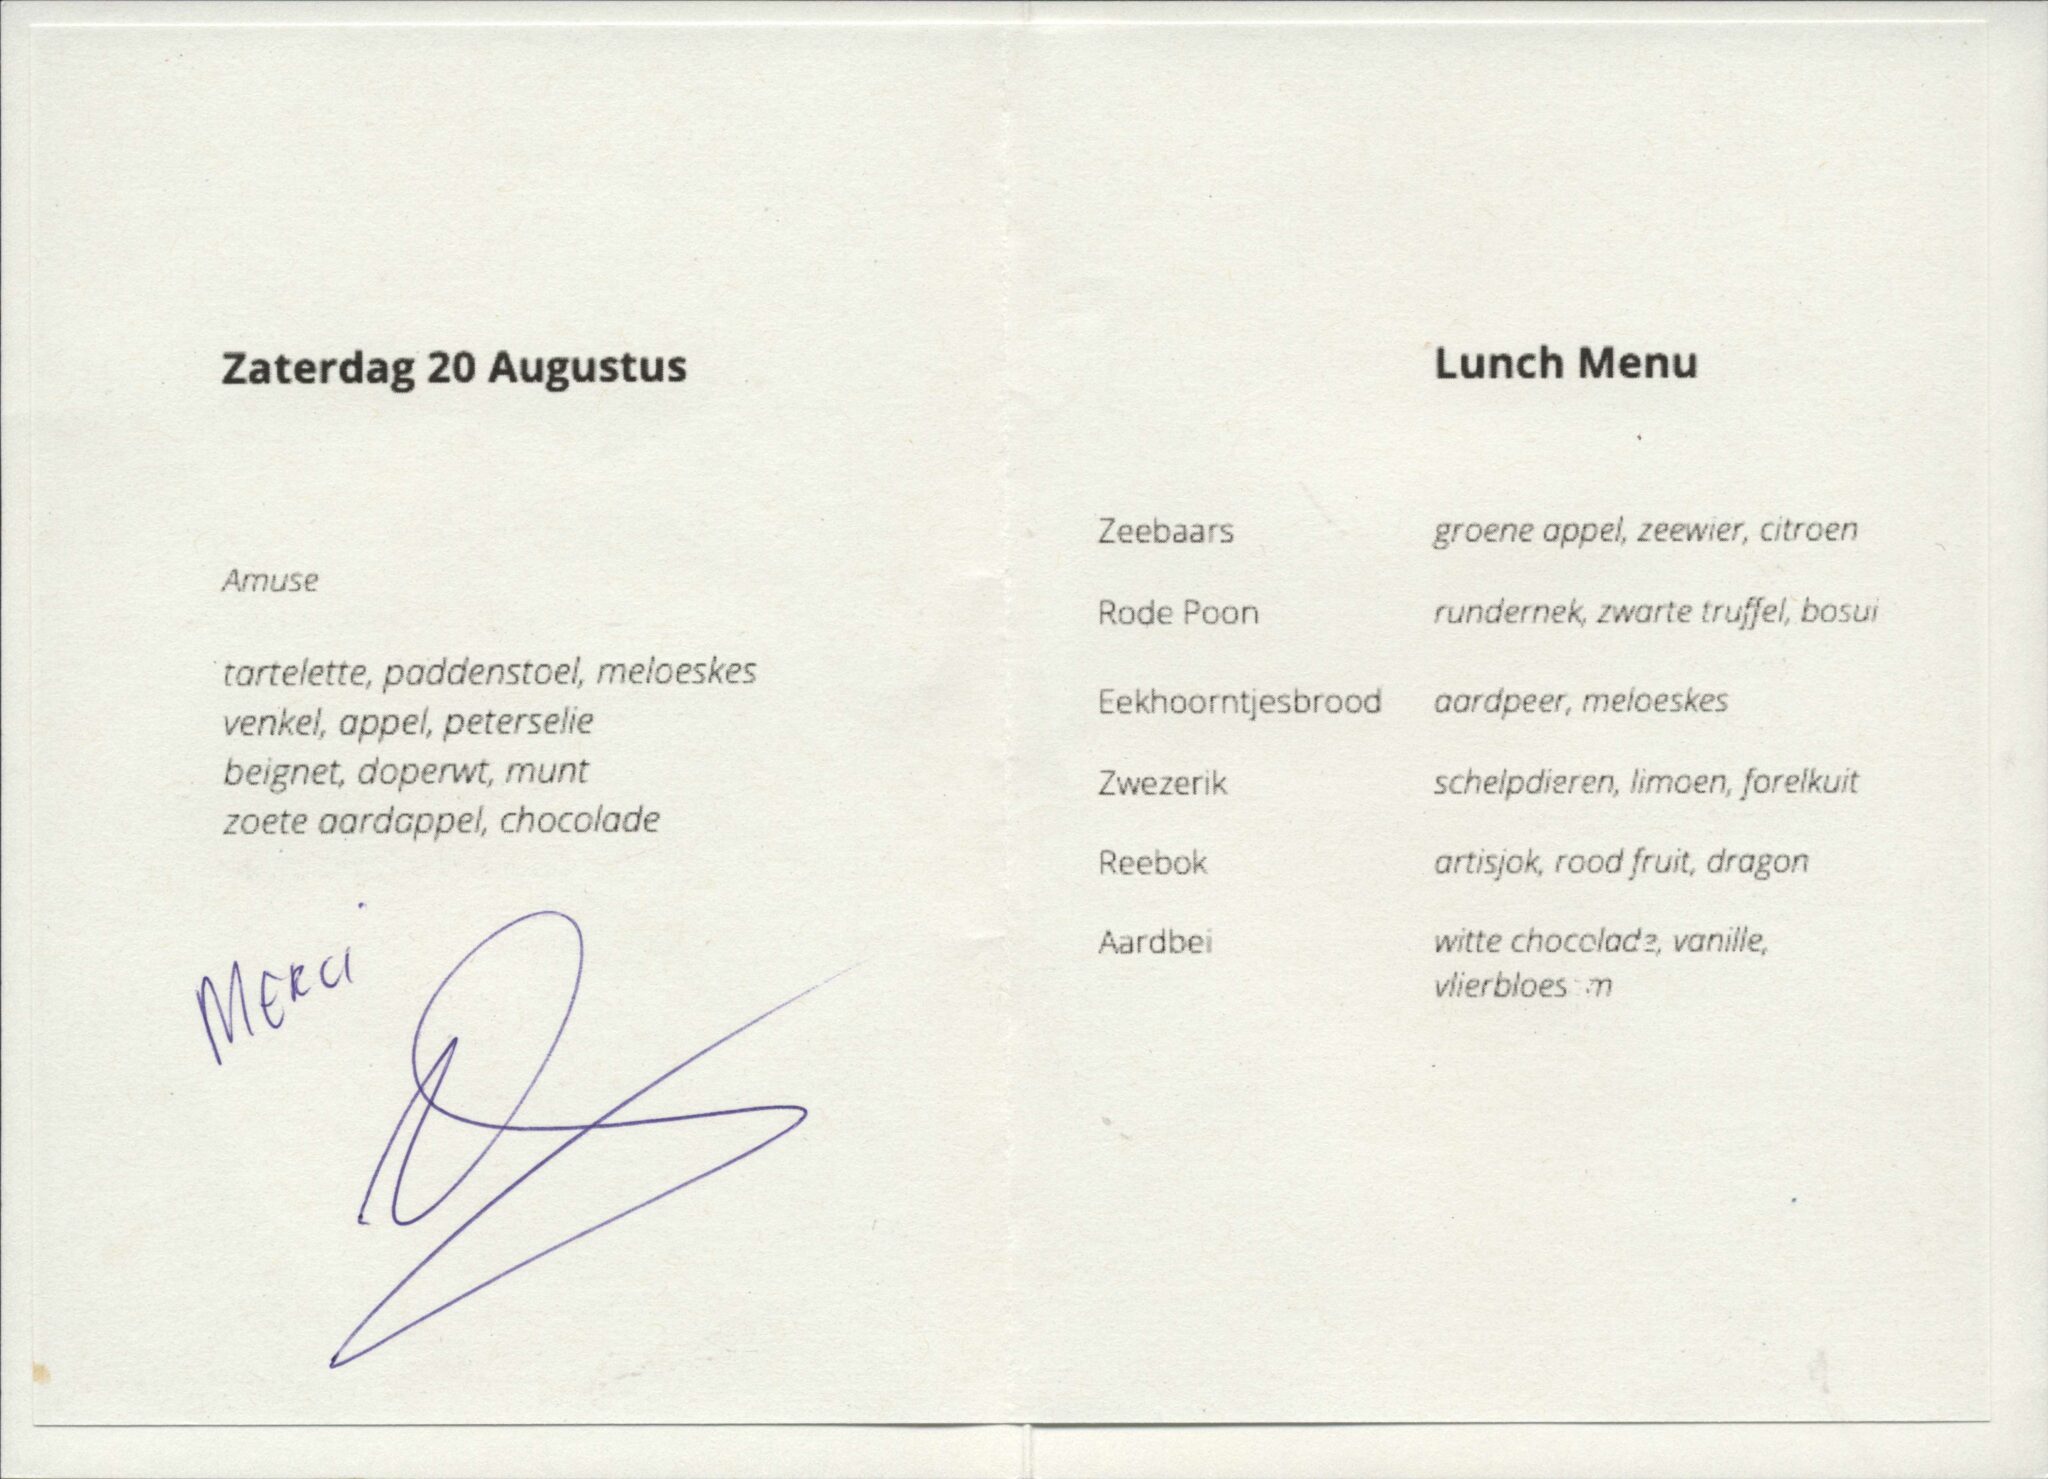 Zaterdag 20 Augustus
Amuse
tartelette, paddenstoel, meloeskes
venkel, appel, peterselie
beignet, doperwt, munt
zoete aardappel, chocolade
MERCI
Lunch Menu
Zeebaars groene appel, zeewier, citroen
Rode Poon rundernek, zwarte truffel, bosui
Eekhoorntjesbrood aardpeer, meloeskes
Zwezerik schelpdieren, limoen, forelkuit
Reebok artisjok, rood fruit, dragon
Aardbei witte chocolade, vanille,
vlierbloesem